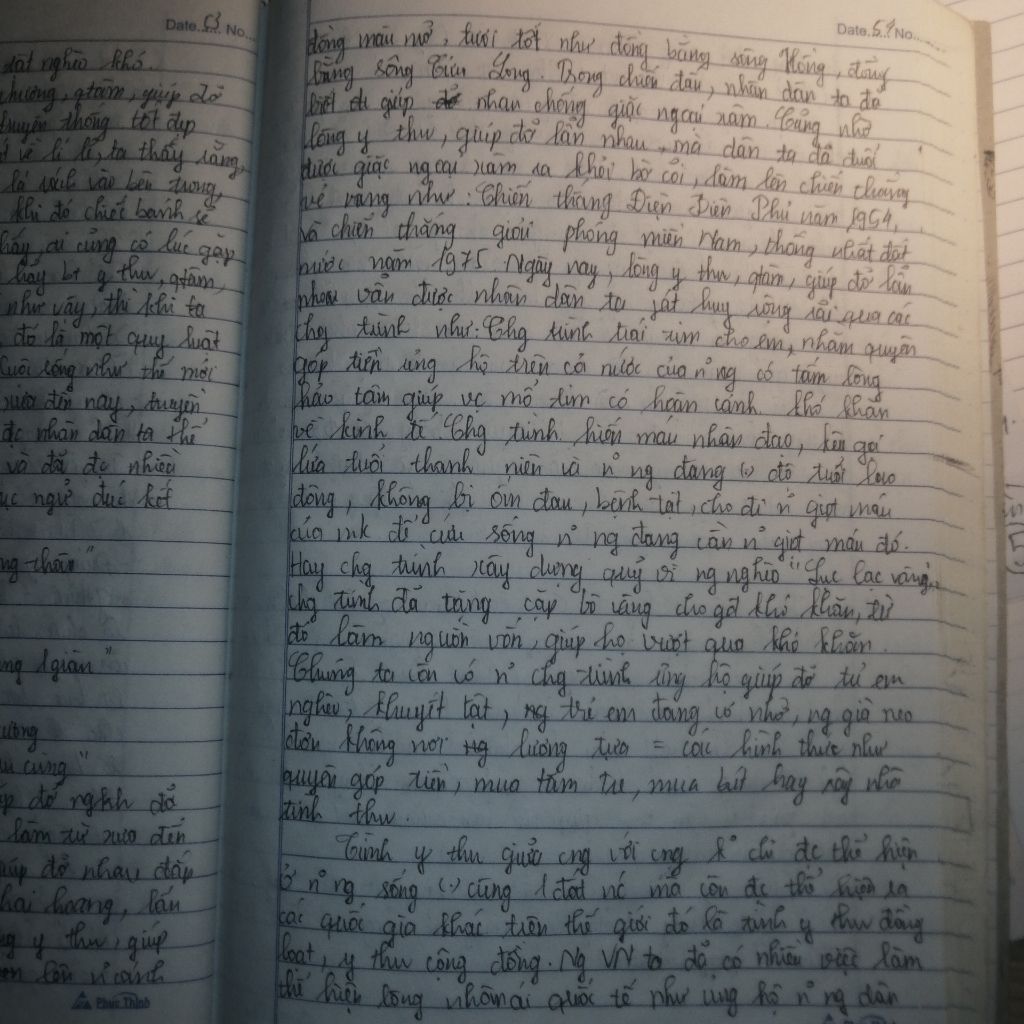 Date..53.. No...
đất nghèo khó.
thương, qtâm, giúp đỡ
truyền thống tốt đẹp
về lí lẽ, ta thấy rằng,
lá rách vào bên trong,
khi đó chiếc bánh sẽ
thấy, ai cũng có lúc gặp
hãy bt y thư, qtâm,
như vậy, thì khi ta
đó là một quy luật
Cuộc sống như thế mới
xưa đến nay, truyền
đc nhân dân ta thể
và đã đc nhiều
tục ngữ đúc kết
ng thân"
ng 1 giàn"
ương
cùng"
đỡ nghkh đã
làm từ xưa đến
giúp đỡ nhau, đắp
hai hương, lấn
y thư, giúp
Phúc Thịnh
Date..54 No........
đồng màu mỡ, tươi tốt như đồng bằng sông Hồng, đồng
bằng sông Cửu Long. Trong chiến đấu, nhân dân ta đã
biết giúp nhau chống giặc ngoại xâm. Cũng nhờ
lòng y thư, giúp đỡ lẫn nhau, mà dân ta đã đuổi
được giặc ngoại xâm ra khỏi bờ cõi, làm lên chiến thắng
vẻ vang như: Chiến thắng Điện Biên Phủ năm 1954,
và chiến thắng giải phóng miền Nam, thống nhất đất
nước năm 1975. Ngày nay, lòng y thư, qtam, giúp đỡ lẫn
nhau vẫn được nhân dân ta phát huy rộng rãi qua các
chg trình như: Chg trình trái tim cho em, nhằm quyên
góp tiền ủng hộ trên cả nước của n~ ng có tấm lòng
hảo tâm giúp vc mổ tim có hoàn cảnh khó khăn
về kinh tế. Chg trình hiến máu nhân đạo, kêu gọi
lứa tuổi thanh niên và n~ ng đang (.) độ tuổi lao
động, không bị ốm đau, bệnh tật, cho đi n~ giọt máu
của mk để cứu sống n~ ng đang cần n~ giọt máu đó.
Hay chg trình xây dựng quỹ vì ng nghèo "Lục lạc vàng",
chg trình đã tặng cặp bò vàng cho gđ khó khăn, từ
đó làm nguồn vốn, giúp họ vượt qua khó khăn.
Chúng ta còn có n~ chg trình ủng hộ giúp đỡ trẻ em
nghèo, khuyết tật, ng trẻ em đang cơ nhỡ, ng già neo
đơn không nơi nương tựa = các hình thức như
quyên góp tiền, mua tăm tre, mua bút hay xây nhà
tình thư.
Tình y thư giữa cng với cng k° chỉ đc thể hiện
ở n~ ng sống (.) cùng 1 đất nc mà còn đc thể hiện ra
các quốc gia khác trên thế giới đó là tình y thư đồng
loạt, y thư cộng đồng. Ng VN ta đã có nhiều việc làm
thể hiện lòng nhân ái quốc tế như ủng hộ n~ ng dân